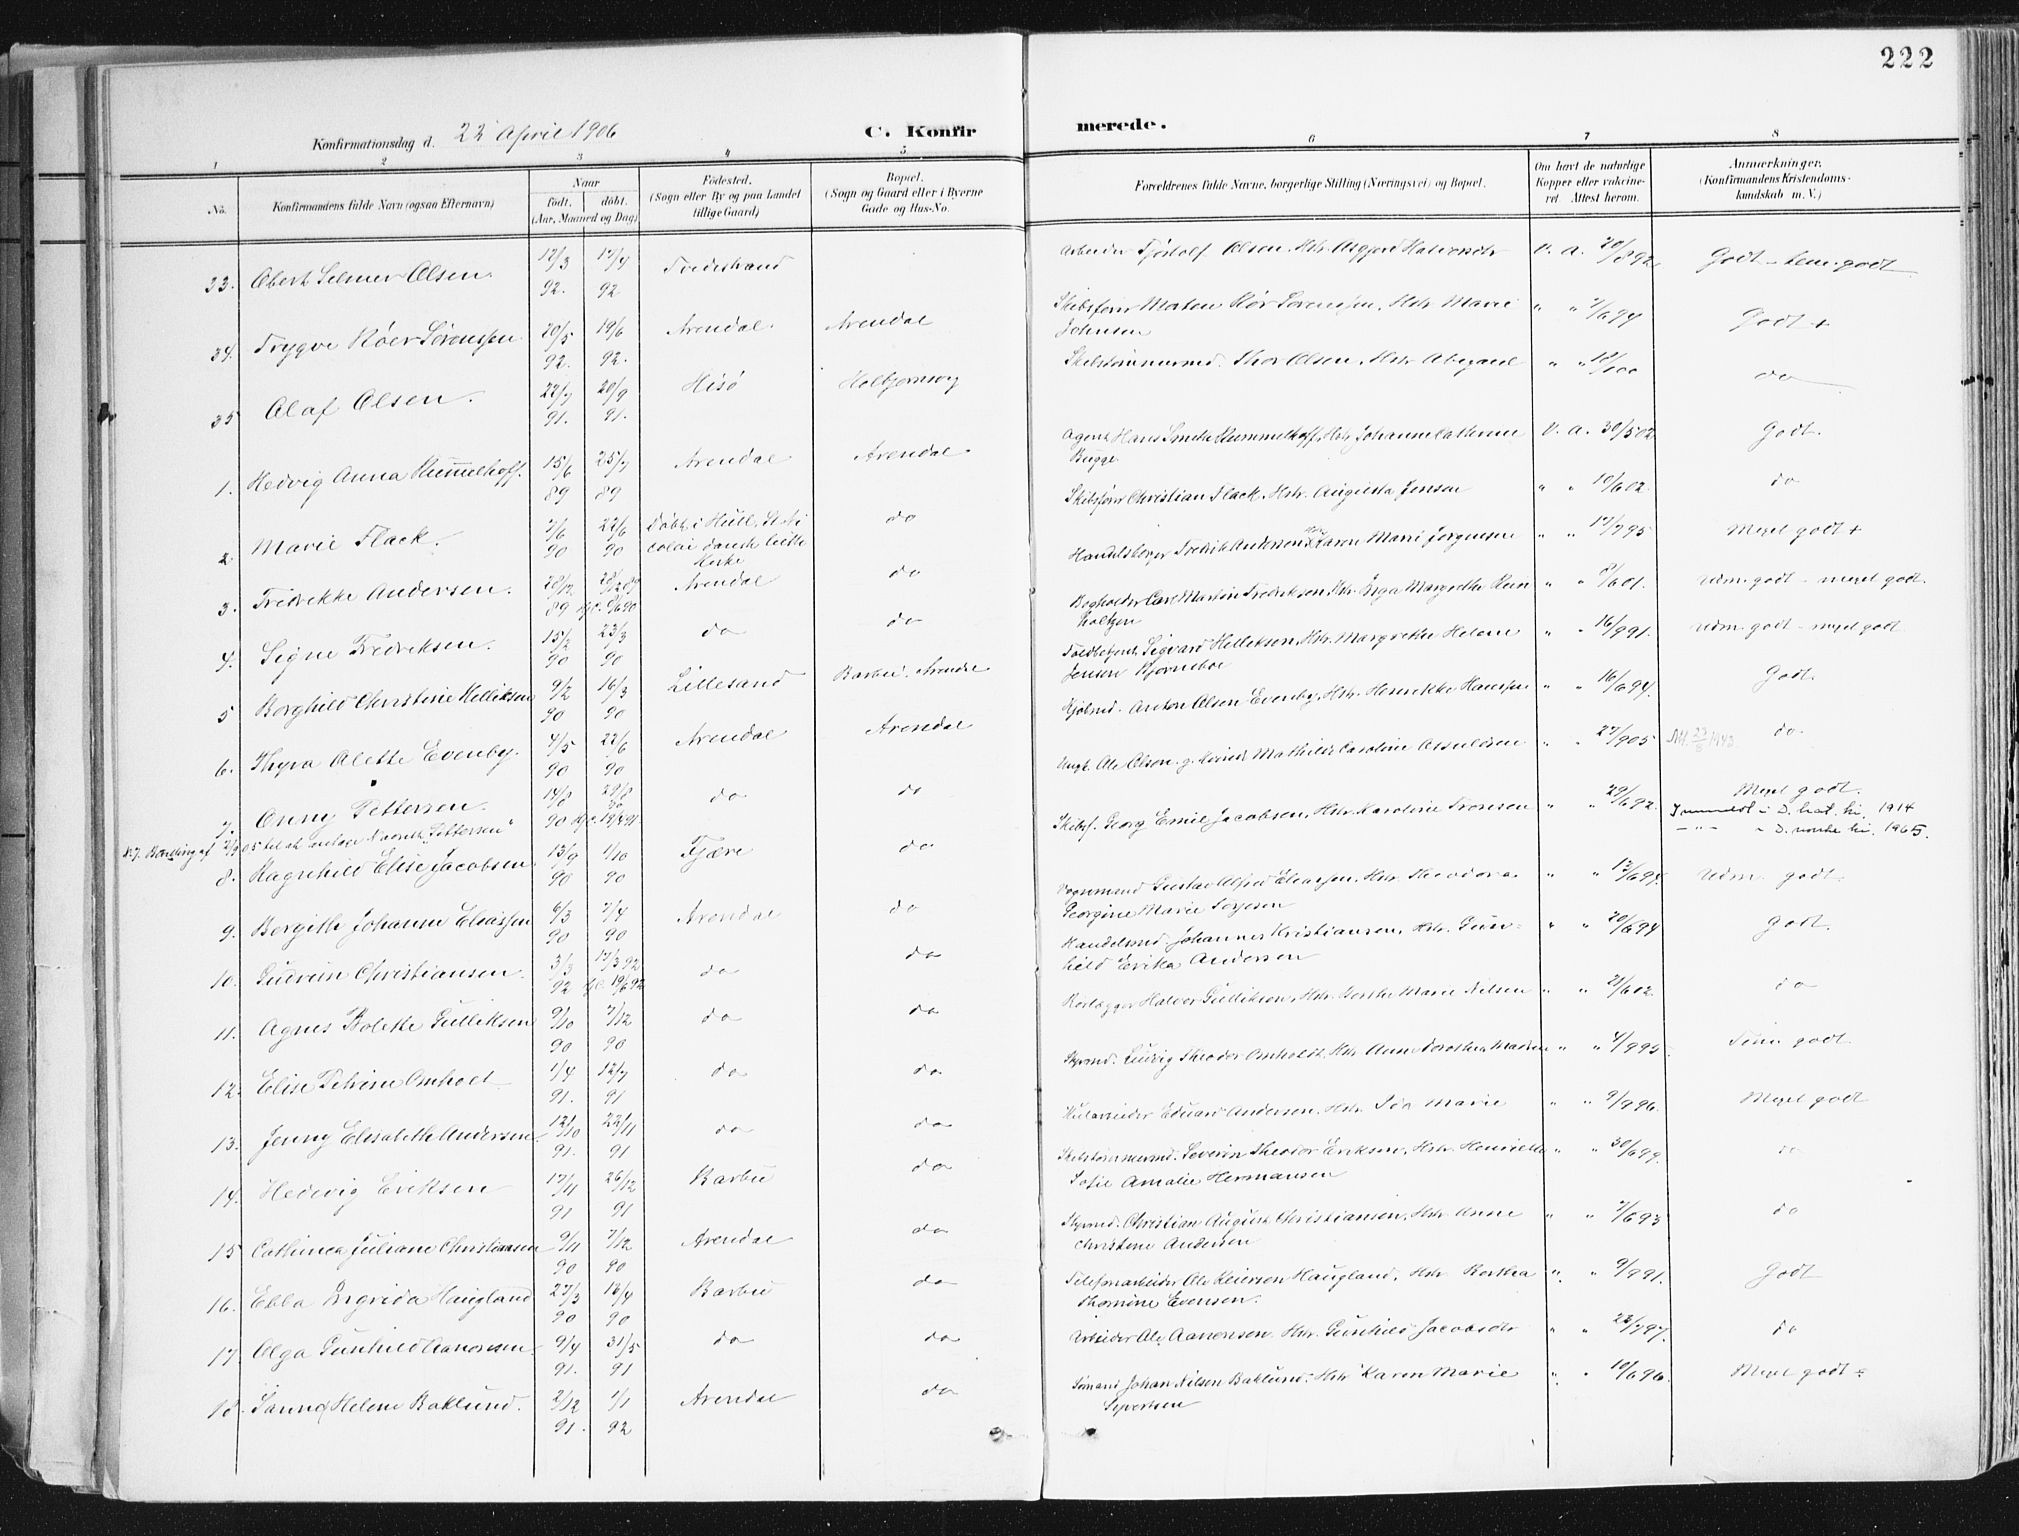 222
Konfirmationsdag d. 22 April 1906
C. Konfirmerede.
1 2 3 4 5 6 7 8
No. Konfirmandens fulde Navn (ogsaa Efternavn) Naar født. døbt. (Aar, Maaned og Dag) Fødested. (Sogn eller By og paa Landet tillige Gaard) Bopæl. (Sogn og Gaard eller i Byerne Gade og Hus-No. Forældrenes fulde Navne, borgerlige Stilling (Næringsvei) og Bopæl. Om havt de naturlige Kopper eller vakcineret Attest herom. Anmerkninger. (Konfirmandens Kristendomskundskab m. V.)
33. Obert Selmer Olsen. 12/3 92. 17/4 92 Tvedestrand Arbeider Tjöstolf Olsen. Hstr Asgjerd Halvorsdtr v. a. 20/892. Godt - temi. godt
34. Trygve Röer Sörenssen 20/5 92. 19/6 92. Arendal. Arendal Skibsförer Morten Rör Sörenssen, Hstr Marie Johnsen " " 7/694 Godt +
35 Olaf Olsen. 22/7 91. 20/9 91. Hisö Kolbjørnsvig Skibstömmermd. Thor Olsen, Hstr Abegael " " do
1. Hedvig Anna Rummelhoff. 15/6 89 25/7 89 Arendal Arendal. Agent Hans Smith Rummelhoff, Hstr Johanne Cathrine Bugge. v. a. 30/502 Godt.
2. Marie Flack. 7/6 90 22/6 90 döbt i Hull, St. Nicolai dansk luth. kirke do Skibsförer Christian Flack, Hstr Augusta Jensen " " 10/602. do
3. Fredrikke Andersen. 28/12 89 28/12 89 Arendal do Handelsborger Fredrik Andersen Hstr Karen Marie Jörgensen " " 17/795 Meget godt +
4. Signe Fredriksen. 15/2 90 23/3 90 do do Bogholder Carl Martin Fredriksen, Hstr Inga Margrethe Reinholtzen " " 8/601. Udm. godt - meget godt.
5 Borghild Christine Helliksen 9/2 90 16/3 90 Lillesand Barbu. Arendal Toldbetjent Sigvard Helliksen, Hstr Margrethe Helene Jensen Bjørneboe " " 16/991. Udm. godt - meget godt
6. Thyra Alette Evenby. 4/5 90 22/6 90 Arendal Arendal Kjöbmd. Anton Olsen Evenby, Hstr Henrikke Hanssen " " 16/694. Godt.
7. Anny Pettersen. 14/8 90 29/8 90 do do Ungk. Ole Olsen. g. Kvinde Mathilde Caroline Osuldsen " " 27/905 do
8. Ragnhild Elise Jacobsen 13/9 90 1/10 90 Fjære do Skibsf. Georg Emil Jacobsen, Hstr Karoline Tronsen " " 29/692. Meget godt.
Innmeldt i D. kat. ki. 1914
— " — D. norske ki. 1965.
9. Borgith Johanne Eliassen 6/3 90 7/4 90 Arendal do Gustav Alfred Eliassen, Hstr Theodora Georgine Marie Terjesen " " 13/694. Udm. godt.
10. Gudrun Christiansen. 3/3 92 17/3 92 do do Handelsmd Johannes Kristiansen, Hstr. Gunhild Erika Andersen " " 20/694 Godt.
11. Agnes Bolette Gulliksen 9/10 90 7/12 90 do do Rörlægger Halvor Gulliksen, Hstr Marie Nilsen " " 21/602. do
12. Elise Petrine Omholt 1/4 91. 12/7 91 do do Styrmd. Ludvig Theodor Omholdt, Hstr Anne Dorothea Madsen " " 4/995. Temi godt.
13. Jenny Elisabeth Andersen 12/10 91. 22/11 91 do do Kularbeider Eduard Andersen. Hstr. Ida Marie " " 9/796. Meget godt
14. Hedevig Eriksen 17/11 91 26/12 91 Barbu do Skibstømmermd. Severin Theodor Eriksen, Hstr Henriette Sofie Amalie Hermansen " " 30/699. do
15 Cathinca Juliane Christiansen 9/11 90 7/12 90 Arendal do Styrmd. Christian August Christiansen, Hstr Anne Christine Andersen " " 7/693 do
16. Ebba Ingrida Haugland 27/3 90 13/4 90 Barbu do Telefonarbeider Ole Reiersen Haugland, Hstr Berthea Thomine Evensen. " " 9/991. Godt
17. Olga Gunhild Aanonsen 9/4 91. 31/5 91 do do Arbeider Ole Aanonsen. Hstr. Gunhild Jacobsdtr " " 22/797. do
18. Sanna Helene Baklund. 2/12 91. 1/1 92 Arendal do Sömand Johan Nilsen Baklund. Hstr Karen Marie Syvertsen " " 10/696. Meget godt